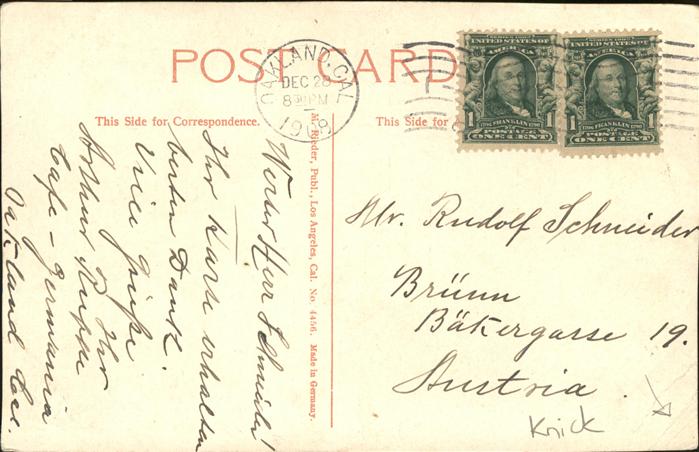 POST CARD
OAKLAND, CAL.
DEC 28
8 30 PM
190
SERIES 1902
UNITED STATES OF
AMERICA
1 FRANKLIN 1
POSTAGE
ONE CENT
SERIES 1902
UNITED STATES OF
AMERICA
1 FRANKLIN 1
POSTAGE
ONE CENT
This Side for Correspondence.
This Side for
M. Rieder, Publ., Los Angeles, Cal. No. 4456. Made in Germany.
Werter Herr Schneider!
Ihr Karte erhalten
besten Dank.
Viele Grüße
Ihr
Arthur
Cafe - Germania
Oakland Cal.
Mr. Rudolf Schneider
Brünn
Bäkergasse 19.
Austria.
Knick